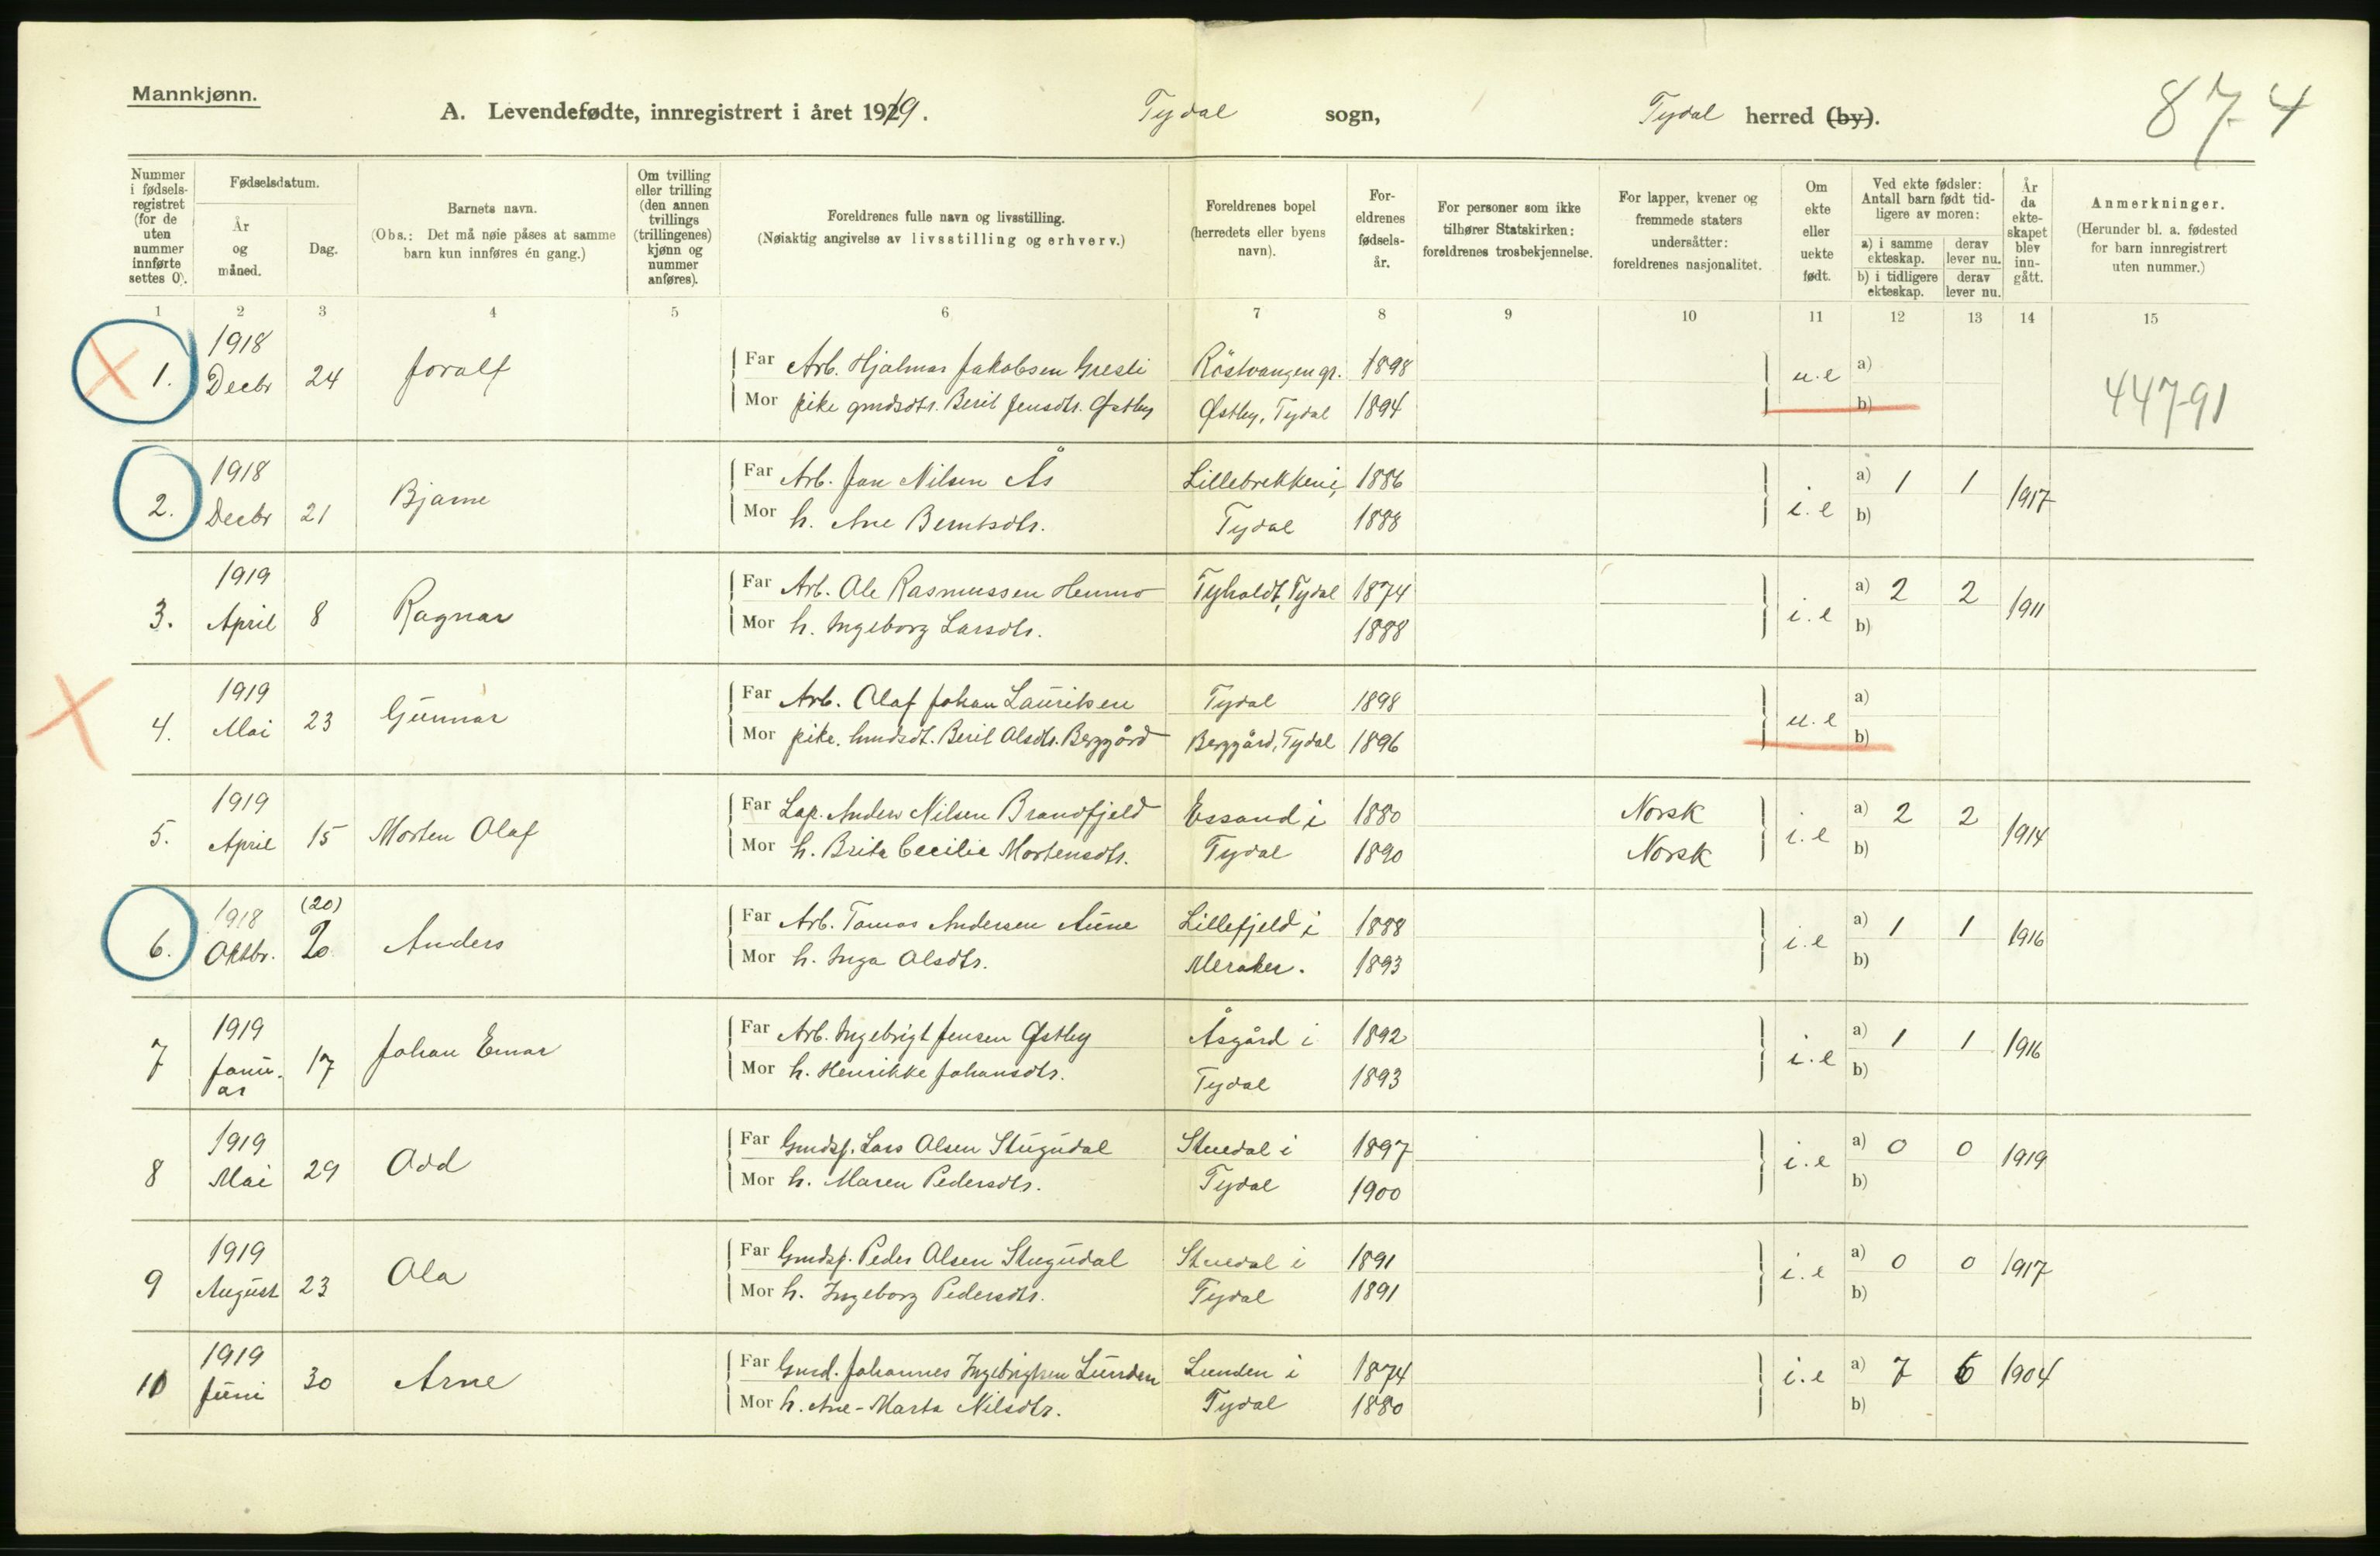 Mannkjønn.
A. Levendefødte, innregistrert i året 1919. Tydal sogn, Tydal herred (by). 87-4
Nummer i fødselsregistret (for de uten nummer innførte settes 0).
Fødselsdatum.
År og måned.
Dag.
Barnets navn.
(Obs.: Det må nøie påses at samme barn kun innføres én gang.)
Om tvilling eller trilling (den annen tvillings (trillingenes) kjønn og nummer anføres).
Foreldrenes fulle navn og livsstilling.
(Nøiaktig angivelse av livsstilling og erhverv.)
Foreldrenes bopel (herredets eller byens navn).
Foreldrenes fødselsår.
For personer som ikke tilhører Statskirken: foreldrenes trosbekjennelse.
For lapper, kvener og fremmede staters undersåtter: foreldrenes nasjonalitet.
Om ekte eller uekte født.
Ved ekte fødsler: Antall barn født tidligere av moren:
a) i samme ekteskap. derav lever nu.
b) i tidligere ekteskap. derav lever nu.
År da ekteskapet blev inngått.
Anmerkninger.
(Herunder bl. a. fødested for barn innregistrert uten nummer.)
1 2 3 4 5 6 7 8 9 10 11 12 13 14 15
1918
1. Decbr 24 Joralf Far Arb. Hjalmar Jakobsen Gresli Röstvangen gr. 1898 u.e a)
Mor pike gmdsdtr. Berit Jensdtr. Østby Østby, Tydal 1894 b) 447-91
1918
2. Decbr 21 Bjarne Far Arb. Jon Nilsen Ås Lillebrekken i, 1886 i.e a) 1 1 1917
Mor h. Ane Berntsdtr. Tydal 1888 b)
1919
3. April 8 Ragnar Far Arb. Ole Rasmussen Hemmo Tyholdt, Tydal 1874 i.e a) 2 2 1911
Mor h. Ingeborg Larsdtr. 1888 b)
1919
4. Mai 23 Gunnar Far Arb. Olaf Johan Lauritsen Tydal 1898 u.e a)
Mor pike. Gmdsdt. Berit Olsdtr. Berggård Berggård, Tydal 1896 b)
1919
5. April 15 Morten Olaf Far Lap. Anders Nilsen Brandfjeld Essand i 1880 Norsk i.e a) 2 2 1914
Mor h. Brita Cecilie Mortensdtr. Tydal 1890 Norsk b)
1918 (20)
6. Oktbr. 20 Anders Far Arb. Tomas Andersen Aune Lillefjeld i 1888 i.e a) 1 1 1916
Mor h. Inga Olsdtr. Meraker. 1893 b)
1919
7 Januar 17 Johan Einar Far Arb. Ingebrigt Jensen Østby Åsgård i 1892 i.e a) 1 1 1916
Mor h. Henrikke Johansdtr. Tydal 1893 b)
1919
8 Mai 29 Odd Far Gmdsf. Lars Olsen Stugudal Stuedal i 1897 i.e a) 0 0 1919
Mor h. Maren Pedersdtr. Tydal 1900 b)
1919
9 August 23 Ola Far Gmdsf. Peder Olsen Stugudal Stuedal i 1891 i.e a) 0 0 1917
Mor h. Ingeborg Pedersdtr. Tydal 1891 b)
1919
10 Juni 30 Arne Far Gmd. Johannes Ingebrigtsen Lunden Lunden i 1874 i.e a) 7 6 1904
Mor h. Ane-Marta Nilsdtr. Tydal 1880 b)